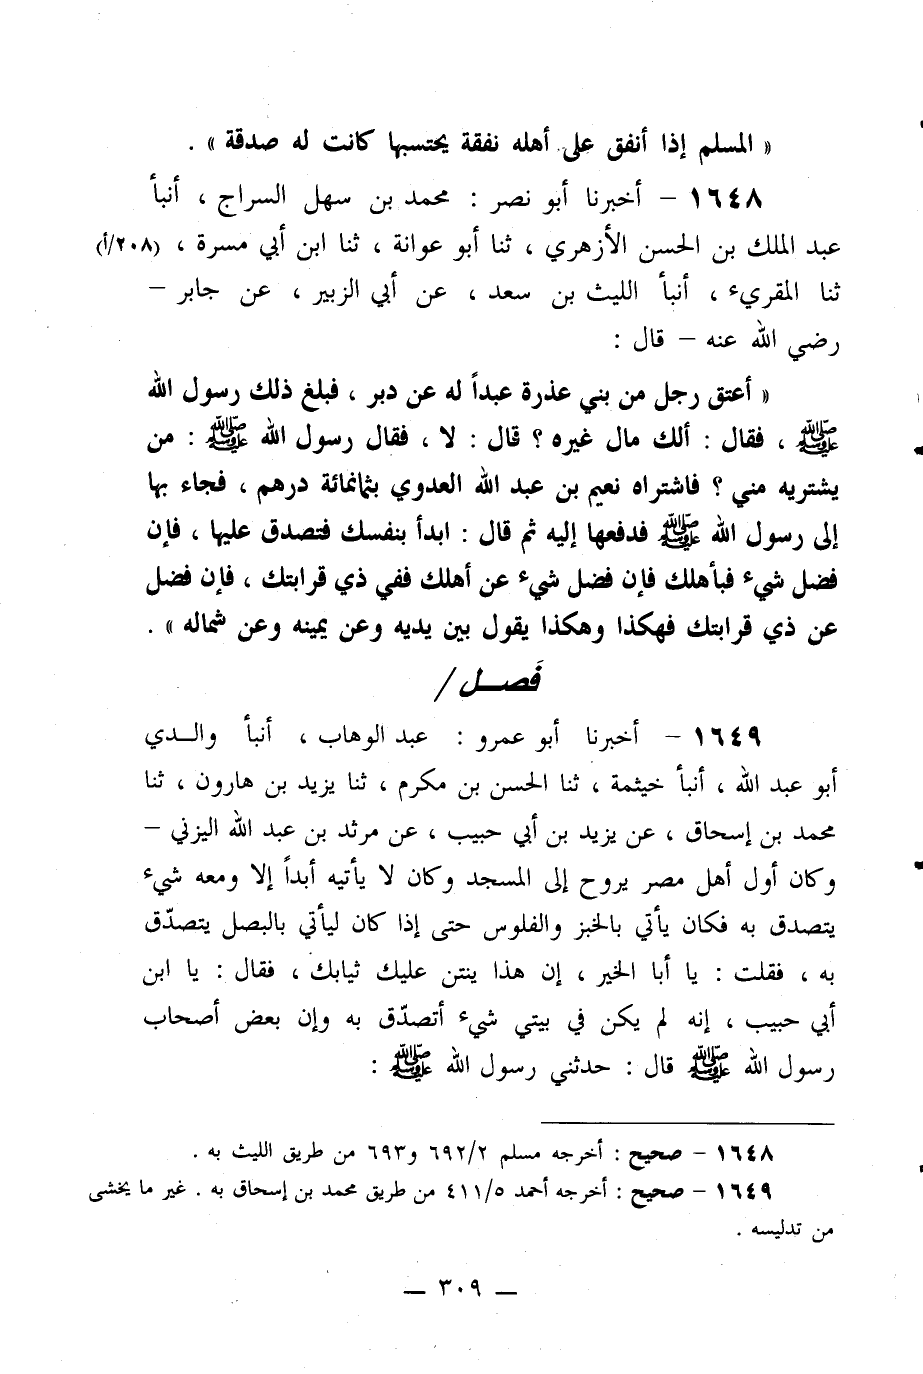 « المسلم إذا أنفق على أهله نفقة يحتسبها كانت له صدقة » .
١٦٤٨ – أخبرنا أبو نصر : محمد بن سهل السراج ، أنبأ
عبد الملك بن الحسن الأزهري ، ثنا أبو عوانة ، ثنا ابن أبي مسرة ، (٢٠٨/أ)
ثنا المقريء ، أنبأ الليث بن سعد ، عن أبي الزبير ، عن جابر –
رضي الله عنه – قال :
« أعتق رجل من بني عذرة عبداً له عن دبر ، فبلغ ذلك رسول الله
ﷺ ، فقال : ألك مال غيره ؟ قال : لا ، فقال رسول الله ﷺ : من
يشتريه مني ؟ فاشتراه نعيم بن عبد الله العدوي بثمانمائة درهم ، فجاء بها
إلى رسول الله ﷺ فدفعها إليه ثم قال : ابدأ بنفسك فتصدق عليها ، فإن
فضل شيء فبأهلك فإن فضل شيء عن أهلك ففي ذي قرابتك ، فإن فضل
عن ذي قرابتك فهكذا وهكذا يقول بين يديه وعن يمينه وعن شماله » .
فَصــل /
١٦٤٩ – أخبرنا أبو عمرو : عبد الوهاب ، أنبأ والـدي
أبو عبد الله ، أنبأ خيثمة ، ثنا الحسن بن مكرم ، ثنا يزيد بن هارون ، ثنا
محمد بن إسحاق ، عن يزيد بن أبي حبيب ، عن مرثد بن عبد الله اليزني –
وكان أول أهل مصر يروح إلى المسجد وكان لا يأتيه أبداً إلا ومعه شيء
يتصدق به فكان يأتي بالخبز والفلوس حتى إذا كان ليأتي بالبصل يتصدّق
به ، فقلت : يا أبا الخير ، إن هذا ينتن عليك ثيابك ، فقال : يا ابن
أبي حبيب ، إنه لم يكن في بيتي شيء أتصدّق به وإن بعض أصحاب
رسول الله ﷺ قال : حدثني رسول الله ﷺ :
١٦٤٨ – صحيح : أخرجه مسلم ٦٩٢/٢ و٦٩٣ من طريق الليث به .
١٦٤٩ – صحيح : أخرجه أحمد ٤١١/٥ من طريق محمد بن إسحاق به . غير ما يخشى
من تدليسه .
— ٣٠٩ —